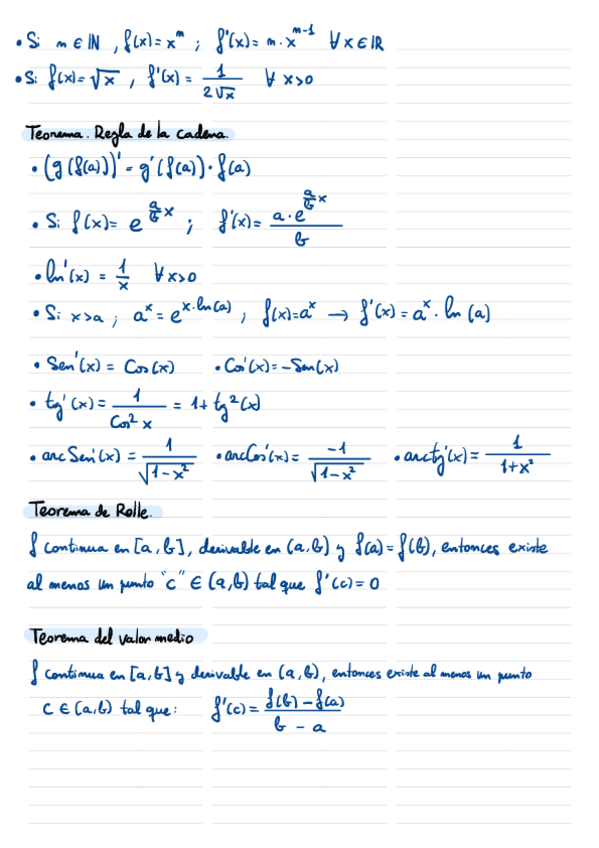 • Si m ∈ ℕ , f(x)= x^m ; f'(x)= m · x^{m-1} ∀ x ∈ ℝ
• Si f(x)= √x , f'(x) = 1/(2√x) ∀ x>0
Teorema. Regla de la cadena.
• (g(f(a)))' = g'(f(a)) · f(a)
• Si f(x)= e^{(a/b)x} ; f'(x)= (a · e^{(a/b)x})/b
• ln'(x) = 1/x ∀ x>0
• Si x>a ; a^x = e^{x·ln(a)} ; f(x)=a^x → f'(x) = a^x · ln(a)
• Sen'(x) = Cos(x) • Cos'(x)= -Sen(x)
• tg'(x) = 1/(Cos² x) = 1 + tg²(x)
• arcSen'(x) = 1/√(1-x²) • arcCos'(x)= -1/√(1-x²) • arctg'(x) = 1/(1+x²)
Teorema de Rolle.
f continua en [a,b], derivable en (a,b) y f(a)= f(b), entonces existe
al menos un punto "c" ∈ (a,b) tal que f'(c) = 0
Teorema del valor medio
f continua en [a,b] y derivable en (a,b), entonces existe al menos un punto
c ∈ (a,b) tal que: f'(c) = (f(b) - f(a))/(b - a)